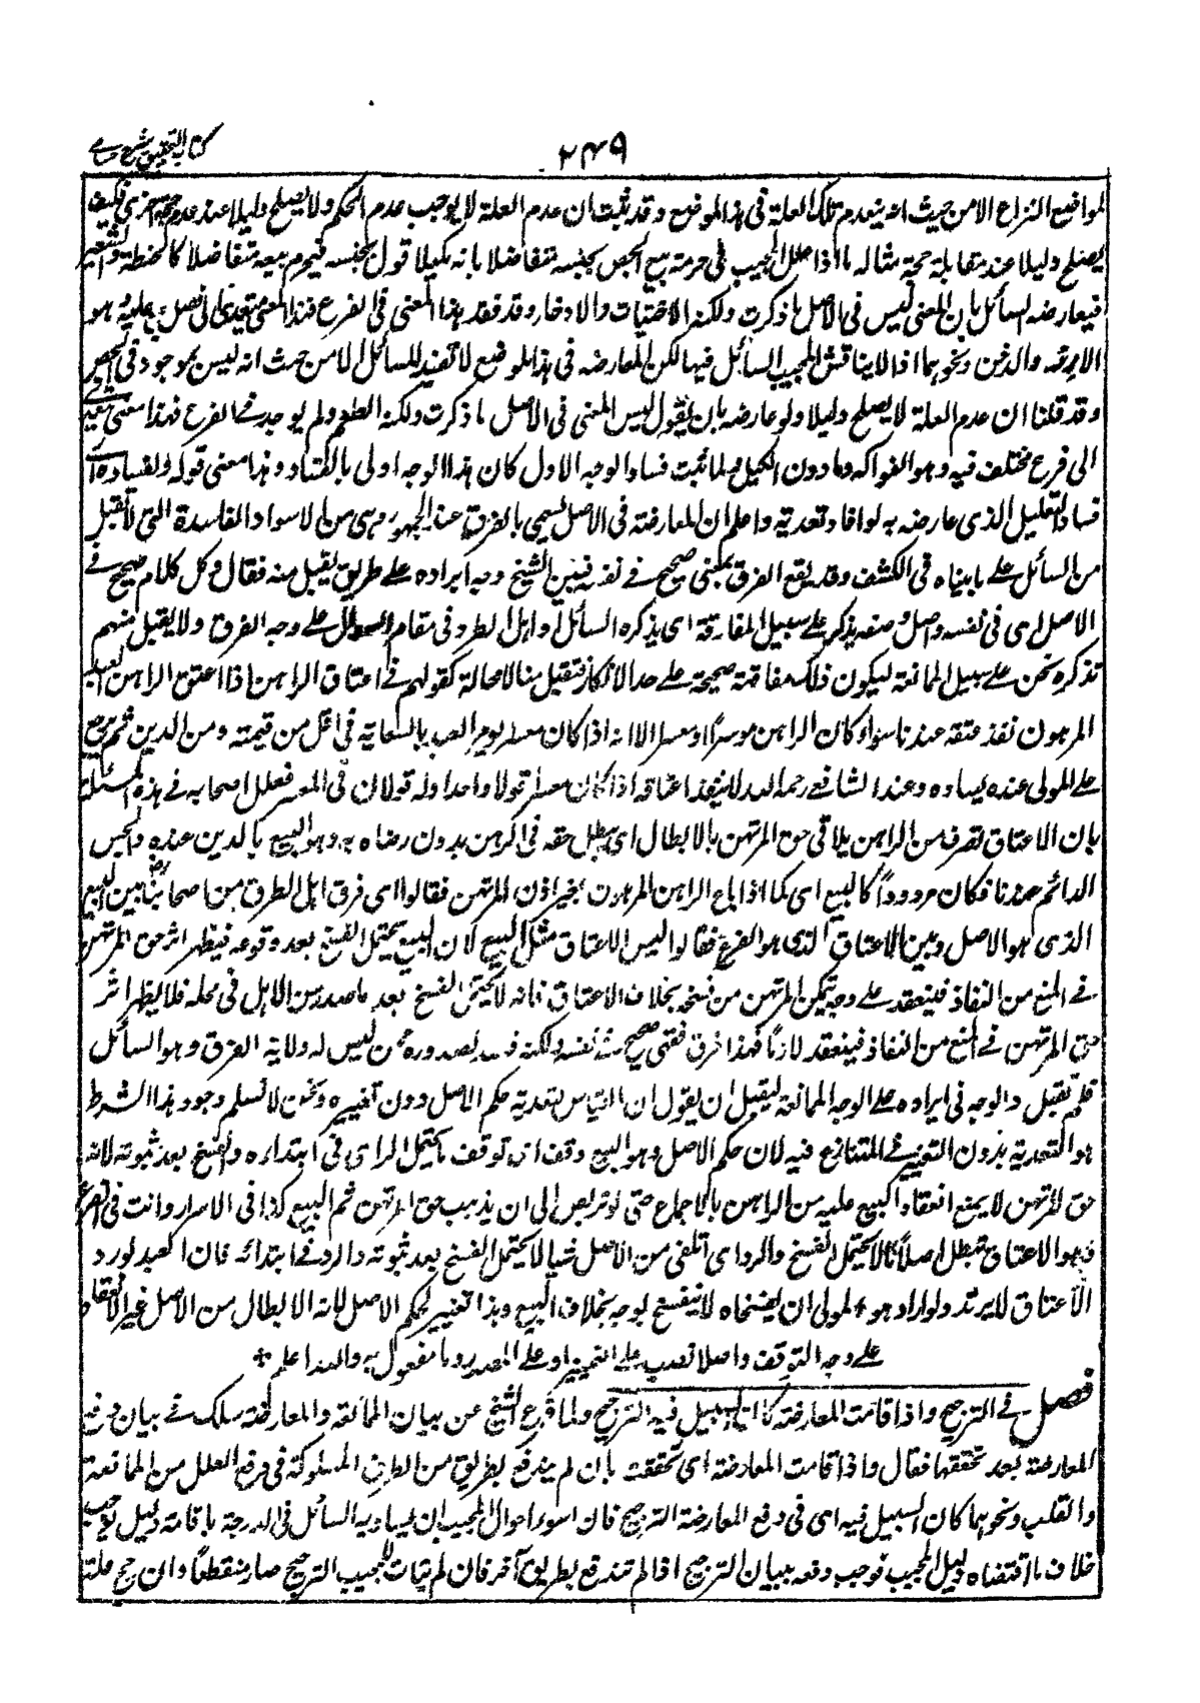 كتاب التحقيق شرح حسامي
٢٤٩
لمواضع النزاع الا من حيث انه ينعدم تلك العلة فى هذا الموضع وقد ثبت ان عدم العلة لا يوجب عدم الحكم ولا يصلح دليلا عند عدم حجة اخرى فكيف
يصلح دليلا عند مقابلة حجة مثاله ما اذا علل المجيب فى حرمة بيع الجص بجنسه متفاضلا بانه مكيل قوبل بجنسه فيحرم بيعه متفاضلا كالحنطة والشعير
فيعارضه السائل بان المعنى ليس فى الاصل ما ذكرت ولكنه الاقتيات والادخار وقد فقد هذا المعنى فى الفرع فهذا المعنى يتعدى الى فصل مجمع عليه وهو
الارز والدخن ونحوهما اذ لا يناقش المجيب السائل فيها لكن المعارضة فى هذا الموضع لا تفيد للسائل الا من حيث انه ليس بموجود فى الجص
وقد قلنا ان عدم العلة لا يصلح دليلا ولو عارضه بان يقول ليس المعنى فى الاصل ما ذكرت ولكنه الطعم ولم يوجد فى الفرع فهذا معنى يتعدى
الى فرع مختلف فيه وهو الفواكه وما دون الكيل ولما ثبت فساد الوجه الاول كان هذا الوجه اولى بالفساد وهذا معنى قوله ولفساده اى
فساد التعليل الذى عارضه به لو افاد تعديته واعلم ان المعارضة فى الاصل تسمى بالفرق عند الجمهور وهى من الاسولة الفاسدة التى لا تقبل
من السائل على ما بيناه فى الكشف وقد يقع الفرق بمعنى صحيح فى نفسه فبين الشيخ وجه ايراده على طريق يقبل منه فقال وكل كلام صحيح فى
الاصل اى فى نفسه واصل وضعه يذكر على سبيل المفارقة اى يذكره السائل او اهل الطرد فى مقام السوال على وجه الفرق ولا يقبل منهم
تذكره نحن على سبيل الممانعة ليكون ذلك مفاقهة صحيحة على حد الانكار فتقبل منا لا محالة كقولهم فى اعتاق الراهن اذا اعتق الراهن العبد
المرهون نفذ عتقه عندنا سواء كان الراهن موسرًا او معسرا الا انه اذا كان معسرا يومر العبد بالسعاية فى اقل من قيمته ومن الدين ثم يرجع
على المولى عنده يساره وعند الشافعى رحمه الله لا ينفذ اعتاقه اذا كان معسرا قولا واحدا وله قولان فى الموسر فعلل اصحابه فى هذه المسئلة
بان الاعتاق تصرف من الراهن يلاقى حق المرتهن بالابطال اى يبطل حقه فى الرهن بدون رضاه به وهو البيع بالدين عنده والحبس
الدائم عندنا فكان مردودًا كالبيع اى كما اذا باع الراهن المرهون بغير اذن المرتهن فقالوا اى فرق اهل الطرد من اصحابنا بين البيع
الذى هو الاصل وبين الاعتاق الذى هو الفرع فقالوا ليس الاعتاق مثل البيع لان البيع يحتمل الفسخ بعد وقوعه فيظهر اثر حق المرتهن
فى المنع من النفاذ فينعقد على وجه يتمكن المرتهن من فسخه بخلاف الاعتاق فانه لا يحتمل الفسخ بعد ما صدر من الاهل فى محله فلا يظهر اثر
حق المرتهن فى المنع من النفاذ فينعقد لازمًا فهذا فرق فقهى صحيح فى نفسه ولكنه فسد لصدوره ممن ليس له ولاية الفرق وهو السائل
فلم تقبل والوجه فى ايراده على الوجه الممانعة ليقبل ان يقول ان القياس لتعدية حكم الاصل دون تغييره ونحن لا نسلم وجود هذا الشرط
هو التعدية بدون التغيير فى المتنازع فيه لان حكم الاصل وهو البيع وقف اى توقف ما يحتمل الرد اى فى ابتدائه والفسخ بعد ثبوته لانه
حق المرتهن لا يمنع انعقاد البيع عليه من الراهن بالاجماع حتى لو تربص الى ان يذهب حق المرتهن تم البيع كذا فى الاسرار وانت فى الفرع
وهو الاعتاق تبطل اصلًا ما لا يحتمل الفسخ والرد اى تلغى من الاصل شيئا لا يحتمل الفسخ بعد ثبوته والرد فى ابتدائه فان العبد لو رد
الاعتاق لا يرتد ولو اراد هو والمولى ان يفسخاه لا ينفسخ بوجه بخلاف البيع وهذا تغيير لحكم الاصل لانه الابطال من الاصل غير الانعقاد
على وجه التوقف واصلا نصب على التمييز او على المصدر وما مفعول به والله اعلم
فصل فى الترجيح واذا قامت المعارضة كان السبيل فيه الترجيح ولما فرغ الشيخ عن بيان الممانعة والمعارضة سلك فى بيان دفع
المعارضة بعد تحققها فقال واذا قامت المعارضة اى تحققت بان لم يندفع بطريق من الطرق المسلوكة فى دفع العلل من الممانعة
والقلب ونحوهما كان السبيل فيه اى فى دفع المعارضة الترجيح فان اسوء احوال المجيب ان يساويه السائل فى الدرجة باقامة دليل يوجب
خلاف ما اقتضاه دليل المجيب فوجب دفعه ببيان الترجيح اذا لم تندفع بطريق آخر فان لم يتأت للمجيب الترجيح صار منقطعًا وان رجح علته